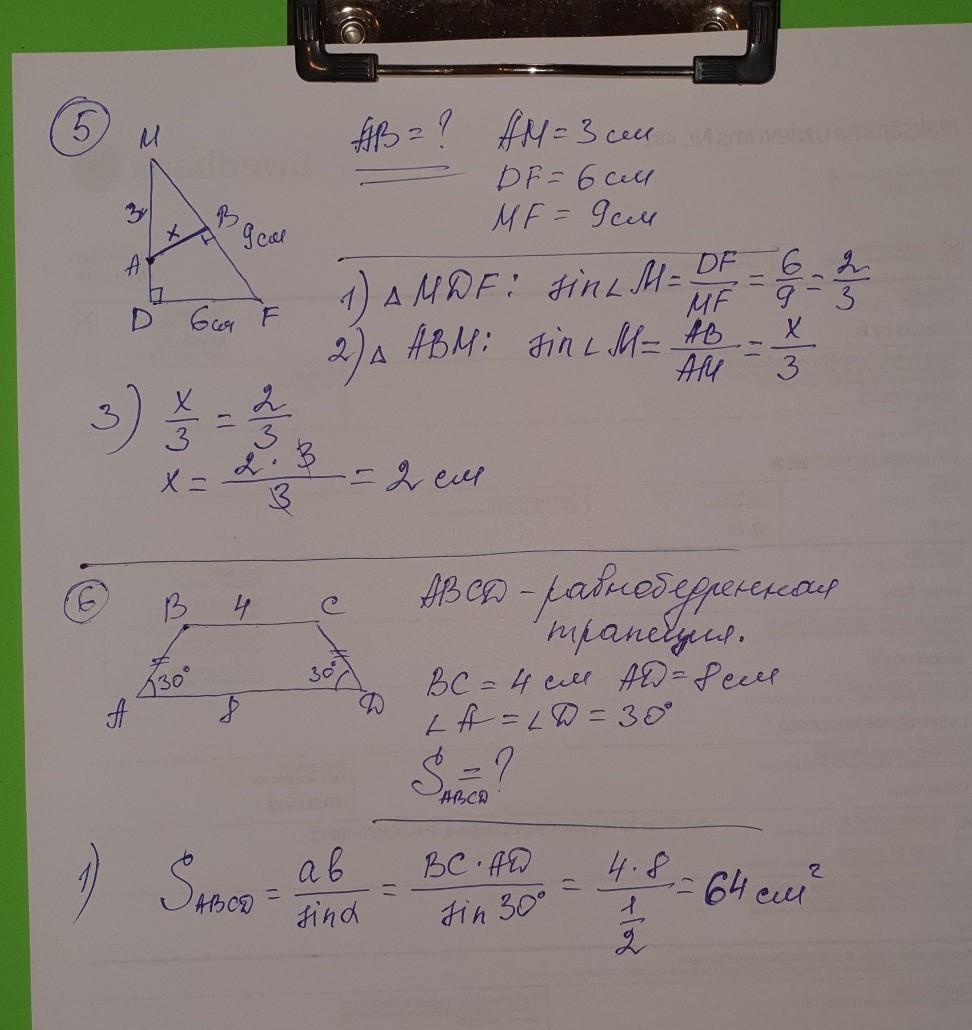 5
M
3
x
B
9см
A
D
6см
F
AB = ?
AM = 3 см
DF = 6 см
MF = 9 см
1) △ MDF: sin∠M = DF/MF = 6/9 = 2/3
2) △ ABM: sin∠M = AB/AM = x/3
3) x/3 = 2/3
x = 2·3/3 = 2 см
6
B 4 C
30° 30°
A 8 D
ABCD - равнобедренная
трапеция.
BC = 4 см AD = 8 см
∠A = ∠D = 30°
S ABCD = ?
1) S ABCD = ab/sinα = BC·AD/sin 30° = 4·8/1/2 = 64 см²
Swedbank